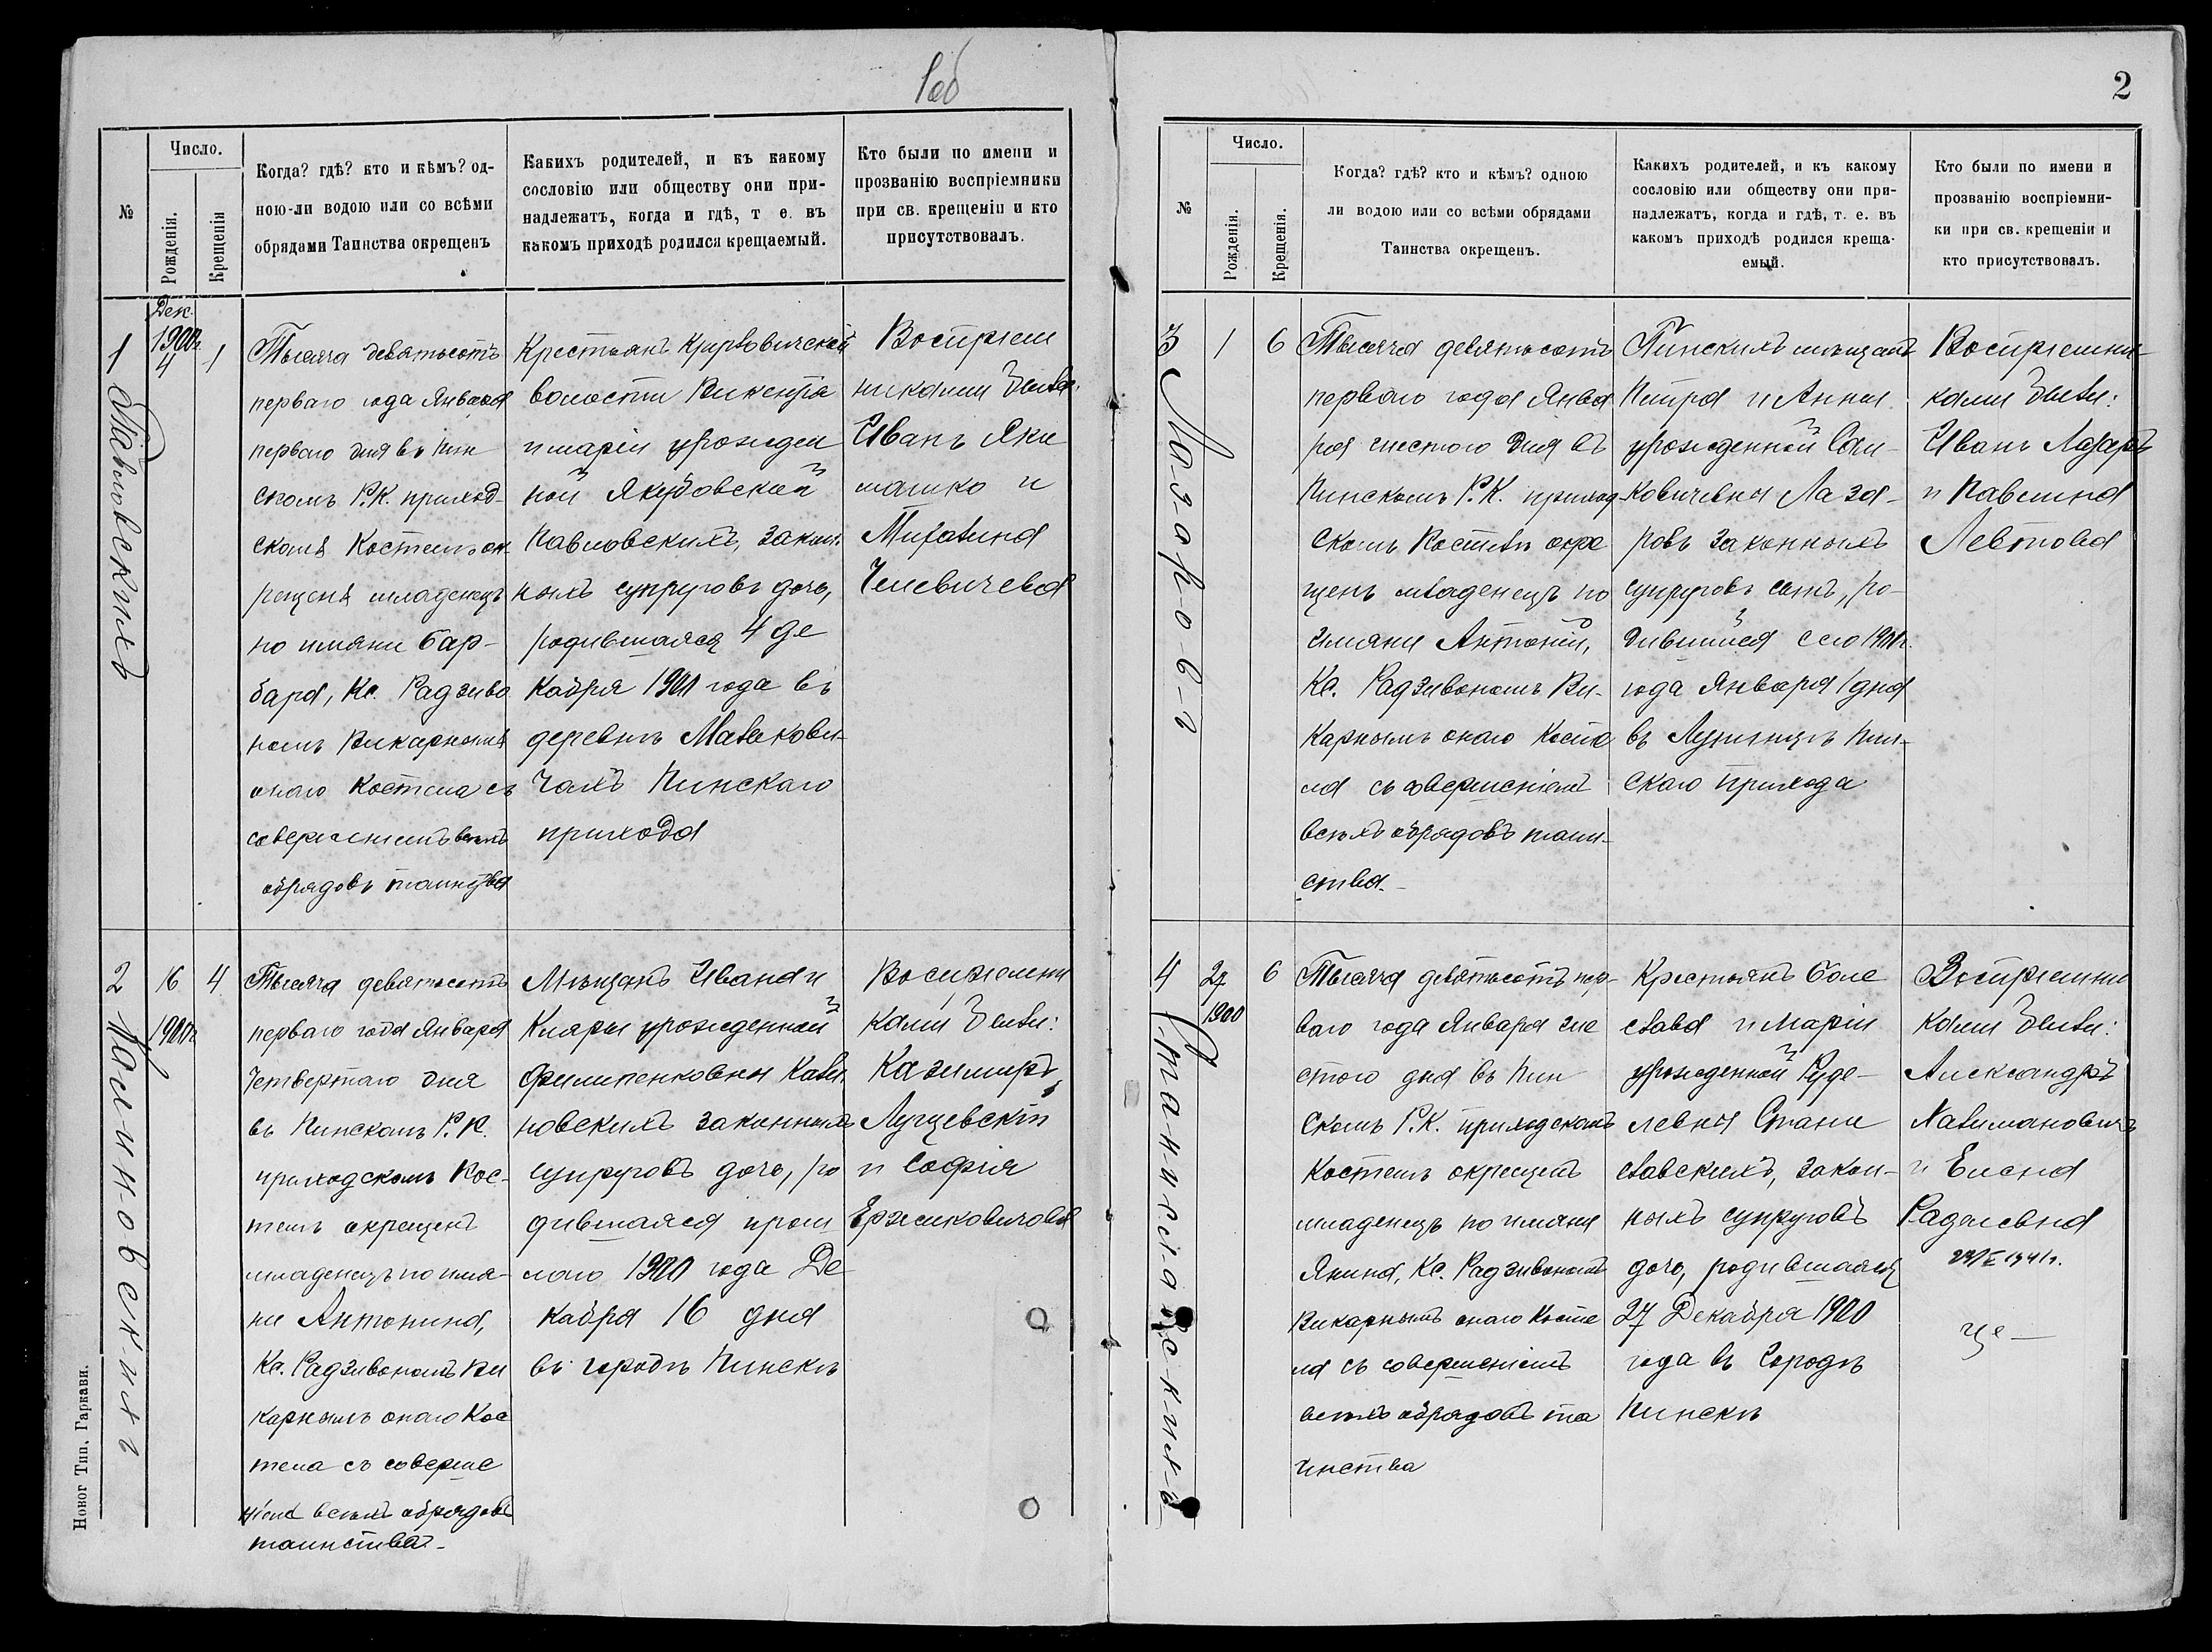 1об
№
Число.
Рожденія.
Крещенія
Когда? гдѣ? кто и кѣмъ? од-
ною-ли водою или со всѣми
обрядами Таинства окрещенъ
Какихъ родителей, и къ какому
сословію или обществу они при-
надлежатъ, когда и гдѣ, т е. въ
какомъ приходѣ родился крещаемый.
Кто были по имени и
прозванію воспріемники
при св. крещеніи и кто
присутствовалъ.
1
Павловскихъ
Дек.
1900г.
4
1
Тысяча девятьсотъ
перваго года Января
перваго дня въ Пин
скомъ Р.К. приход-
скомъ Костелѣ ок
рещенъ младенецъ
по имяни Бар-
бара, Кс. Радзиво
номъ Викарнымъ
онаго Костела съ
совершеніемъ всѣхъ
обрядовъ таинства
Крестьянъ
волости Викентія
и Маріи урожден
ной Якубовской
Павловскихъ, закон.
ныхъ супруговъ дочь,
родившаяся 4 Де
кабря 1900 года въ
деревнѣ Малькови-
чахъ Пинскаго
прихода
Воспріем
никами были:
Иванъ Яки
машко и
2
Калиновскихъ
16
1900г.
4
Тысяча девятьсотъ
перваго года Января
Четвертаго дня
въ Пинскомъ Р.К.
приходскомъ Кос-
телѣ окрещенъ
младенецъ по имя-
ни Антонина,
Кс. Радзивономъ Ви
карнымъ онаго Кос
тела съ соверше
ніемъ всѣхъ обрядовъ
таинства.
Мѣщанъ Ивана и
Клары урожденной
Филипенковны Кали.
новскихъ законныхъ
супруговъ дочь, ро
дившаяся прош
лаго 1900 года Де
кабря 16 дня
въ городѣ Пинскѣ
Воспріемни
ками были:
Казимиръ
Лущевскій
и Софія
Ержиковичова
Новог Тип. Гаркави.
2
№
Число.
Рожденія.
Крещенія.
Когда? гдѣ? кто и кѣмъ? одною
ли водою или со всѣми обрядами
Таинства окрещенъ.
Какихъ родителей, и къ какому
сословію или обществу они при-
надлежатъ, когда и гдѣ, т. е. въ
какомъ приходѣ родился креща-
емый.
Кто были по имени и
прозванію воспріемни-
ки при св. крещеніи и
кто присутствовалъ.
3
Лазаровъ
1
6
Тысяча девятьсотъ
перваго года Янва
ря шестого дня въ
Пинскомъ Р.К. приход-
скомъ Костелѣ окре
щенъ младенецъ по
имяни Антоній,
Кс. Радзивономъ Ви-
карнымъ онаго Косте
ла съ совершеніемъ
всѣхъ обрядовъ таин-
ства.
Пинскихъ мѣщанъ
Петра и Анны
урожденной Сач-
ковичевны Лаза-
ровъ законныхъ
супруговъ сынъ, ро-
дившійся сего 1901г.
года Января 1 дня
въ Лунинцѣ Пин-
скаго прихода
Воспріемни-
ками были:
Иванъ Лазаръ
и Павлина
Левтова
4
Станиславскихъ
27
1900
6
Тысяча девятьсотъ пер-
ваго года Января ше
стого дня въ Пин
скомъ Р.К. приходскомъ
Костелѣ окрещенъ
младенецъ по имяни
Янина, Кс. Радзивономъ
Викарнымъ онаго Косте
ла съ совершеніемъ
всѣхъ обрядовъ та
инства
Крестьянъ Боле
слава и Маріи
урожденной Руде-
левны Стани
славскихъ, закон-
ныхъ супруговъ
дочь, родившаяся
27 Декабря 1900
года въ Городѣ
Пинскѣ
Воспріемни
ками были:
Александръ
и Елена